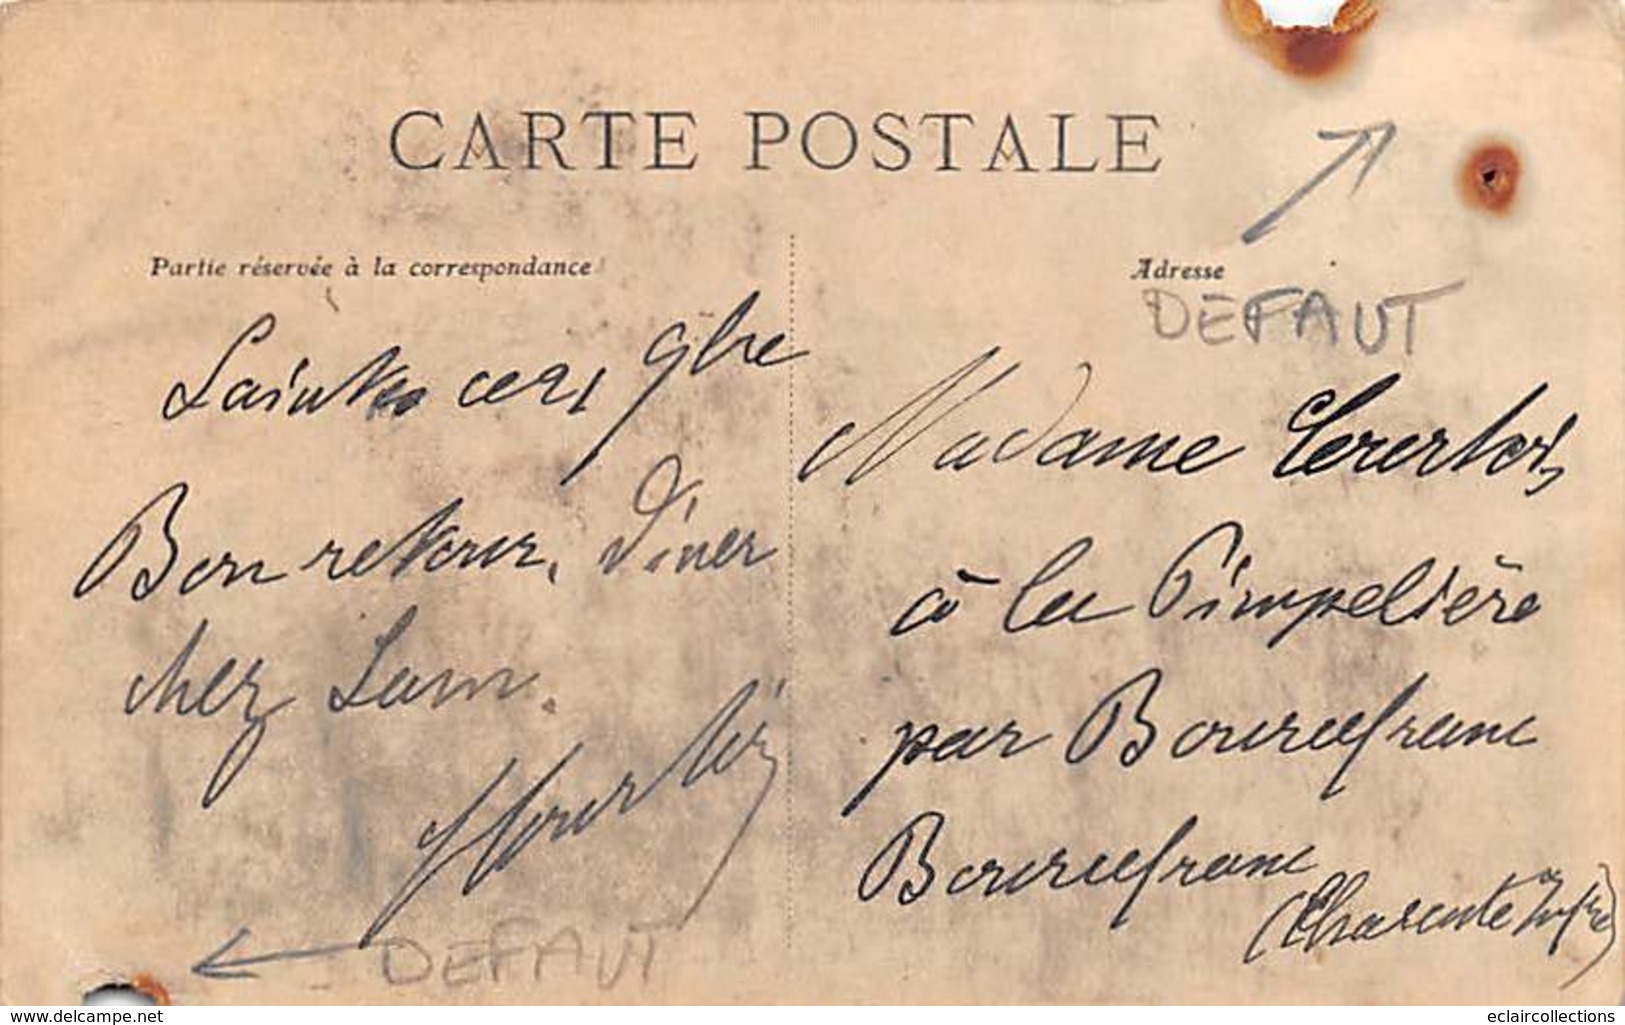 CARTE POSTALE
Partie réservée à la correspondance
Adresse
DEFAUT
Saintes ce 21 9bre
Bon retour. Diner
chez Lam.
Madame
à la Pimpelière
par Bourcefranc
Bourcefranc
(Charente Infre)
DEFAUT
www.delcampe.net
eclaircollections